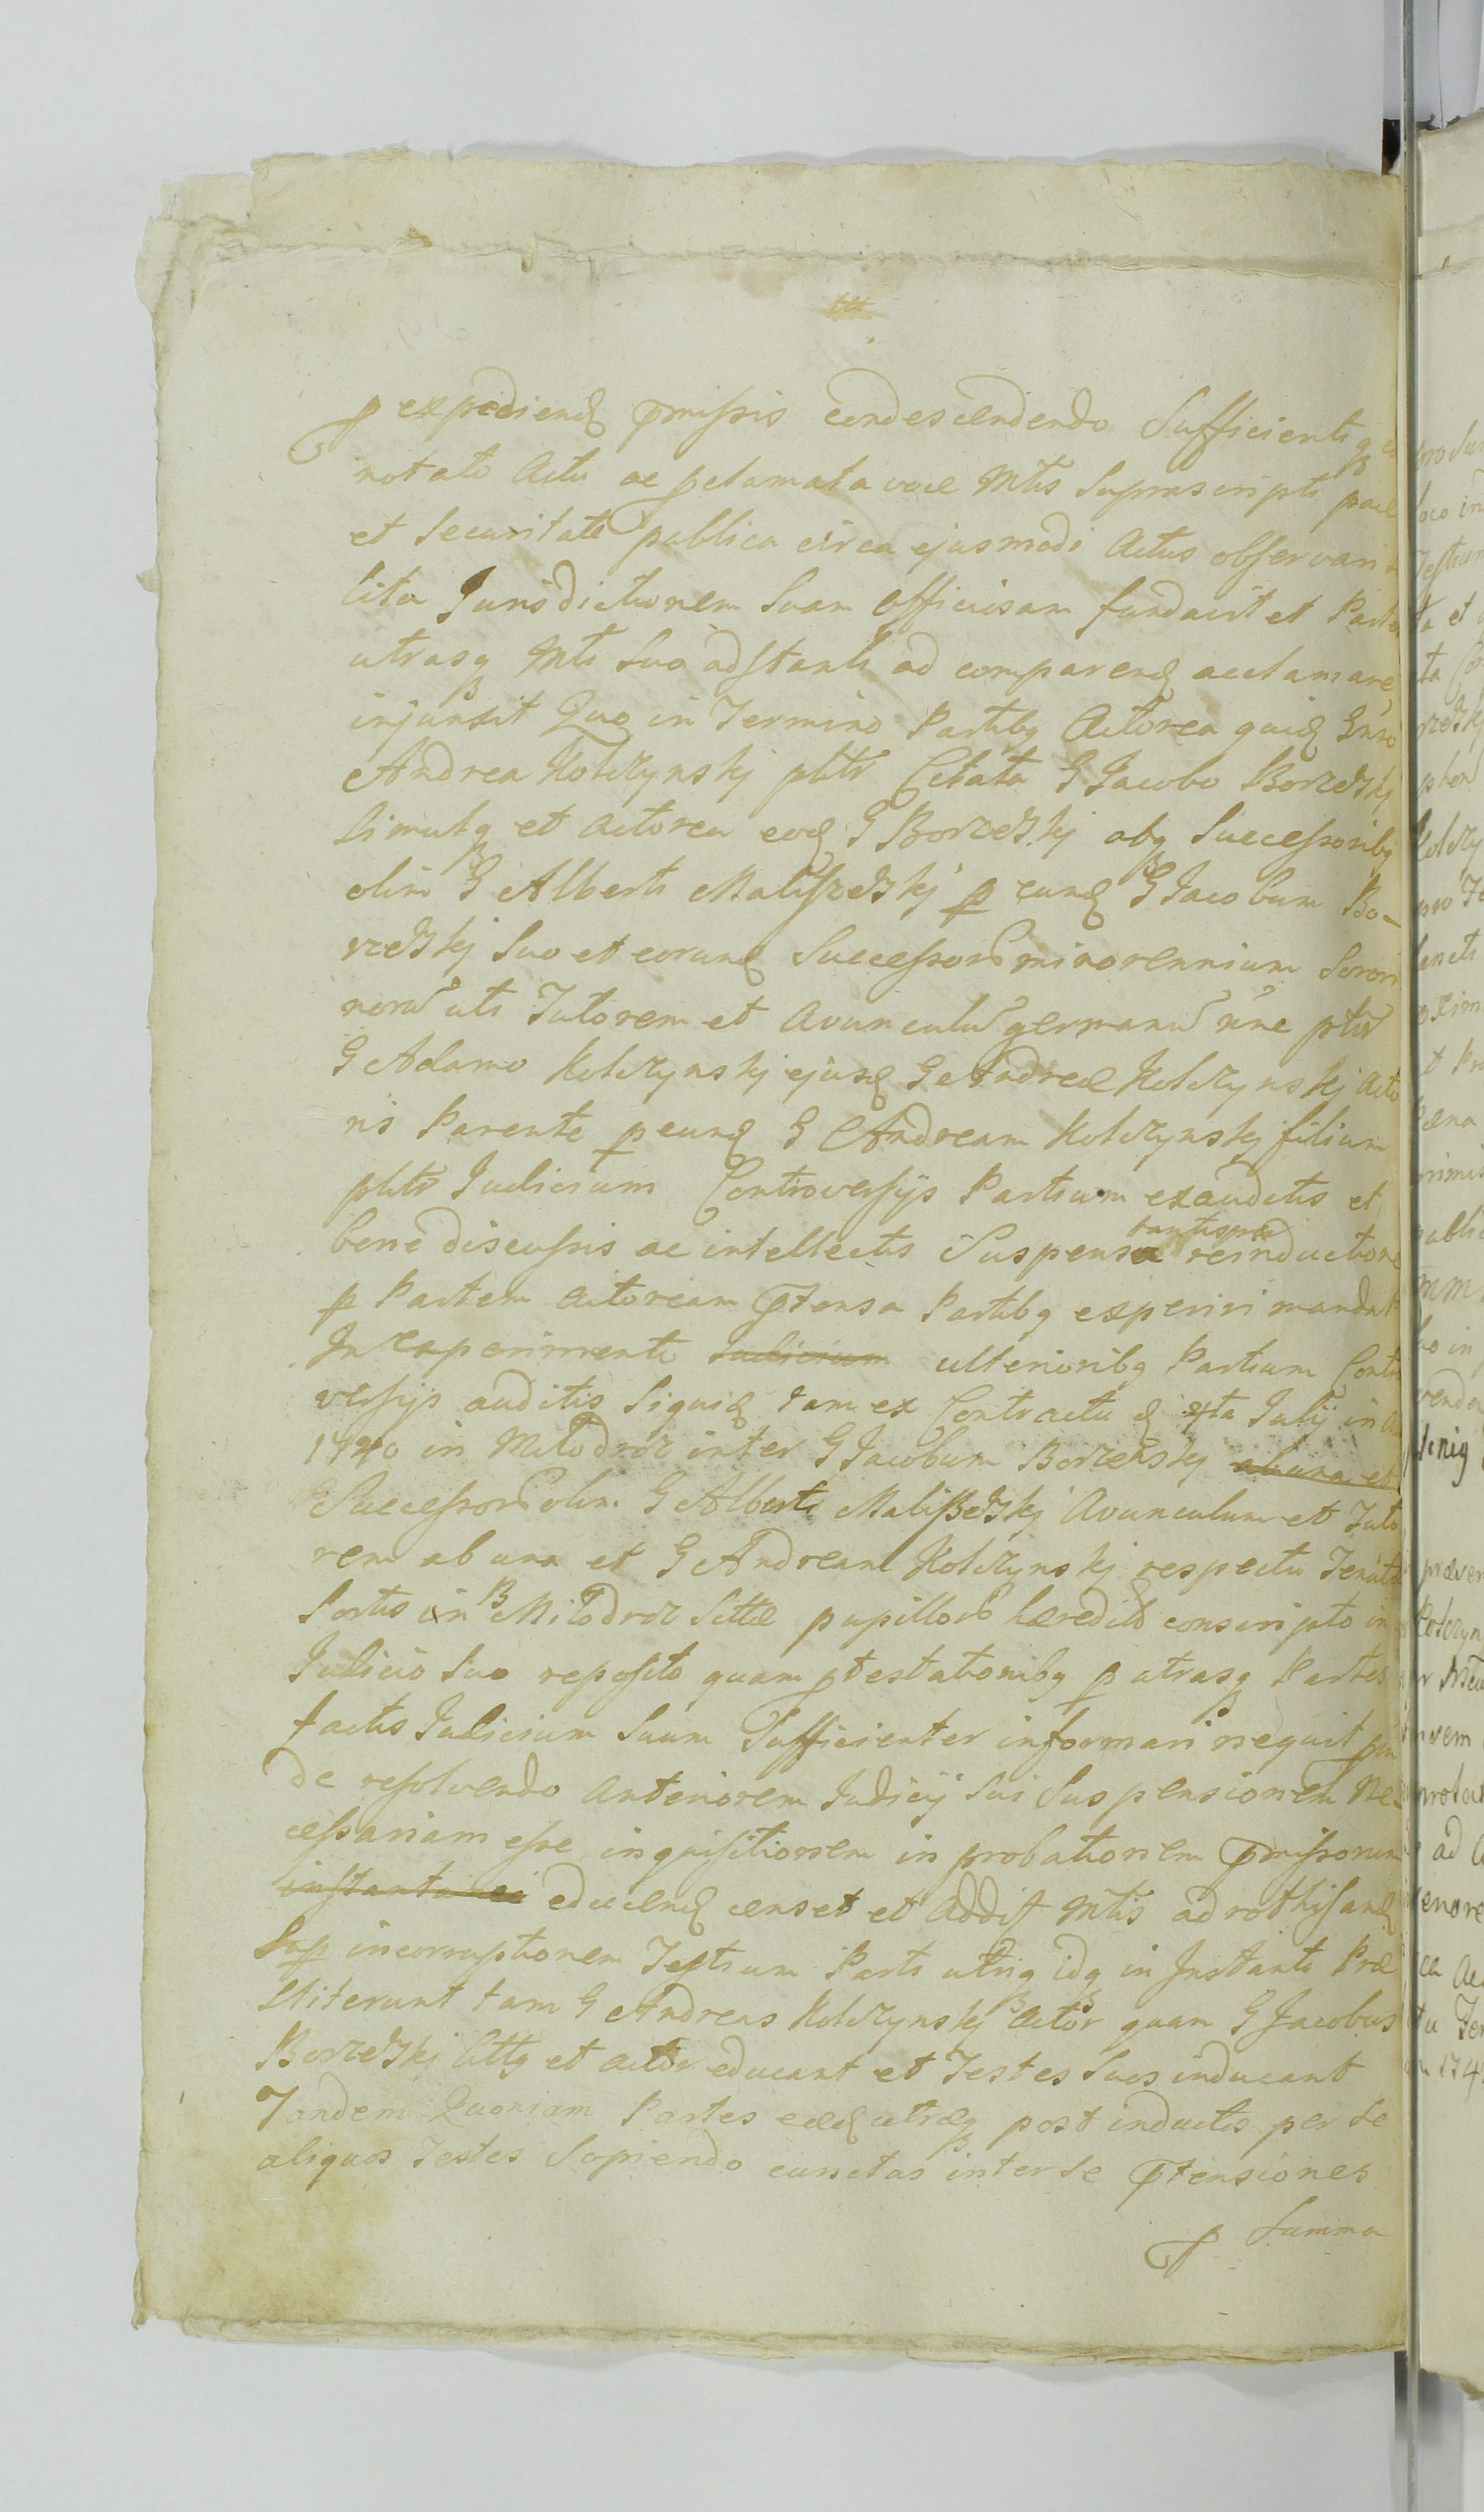 p expediend pmissis condescendendo Sufficientiq
notato Actu ac pclamata voce Mtis Suprascripti pace
et Securitate publica circa ejusmodi Actus observari
lita Jurisdictionem Suam Officiosam fundavit et Partes
utrasq Mti Suo adstanti ad comparend acclamare
injunxit Quo in Termino Partibq Actorea quid Gnso
Andrea Kolczynskj pltr Citata G Jacobo Borzeskj
Simulq et actorea eod G Borzeskj abq Successoribq
olim G Alberti Maliszeskj p eund G Jacobum Bo-
rzeskj Suo et eorund Successor minorennium Sorori
nor uti Tutorem et Avuncul german nne pltr
G Adamo Kolczynskj ejusd G Andreæ Kolczynskj Acto
ris Parente p eund G Andream Kolczynskj filium
pltr Judicium Controversijs Partium exauditis et
bene discussis ac intellectis Suspensa tantisper reinductione
p Partem actoream ptensa Partibq experiri mandat
In Experimento Judicium ulterioribq Partium Contro
versijs auditis Siquid tam ex Contractu d 4ta Julij in
1740 in Milodroz inter G Jacobum Borzeskj ab una et
Successor olim G Alberti Maliszeskj Avunculum et Tuto
rem ab una et G Andream Kolczynskj respectu Tenutæ
Sortis in B Milodroz Sittæ pupillor hæredit conscripto in
Judicio Suo reposito quam ptestationibq p utrasq Partes
factis Judicium Suum Sufficienter informari nequit
de resolvendo anteriorem Judicij Sui Suspensionem Ne
cessariam esse inquisitionem in probationem pmissorum
instantanei educend censet et addit Mtis ad rothisand
Sup incorruptionem Testium Parti utriq idq in Instanti Præ
stiterunt tam G Andreas Kolczynskj Actor quam G Jacobus
Borzeskj Cittq et actor educant et Testes Suos inducant
Tandem Quoniam Partes eæd utræq post inductis per se
aliquos Testes Sopiendo cunctas inter se ptensiones
p Summa